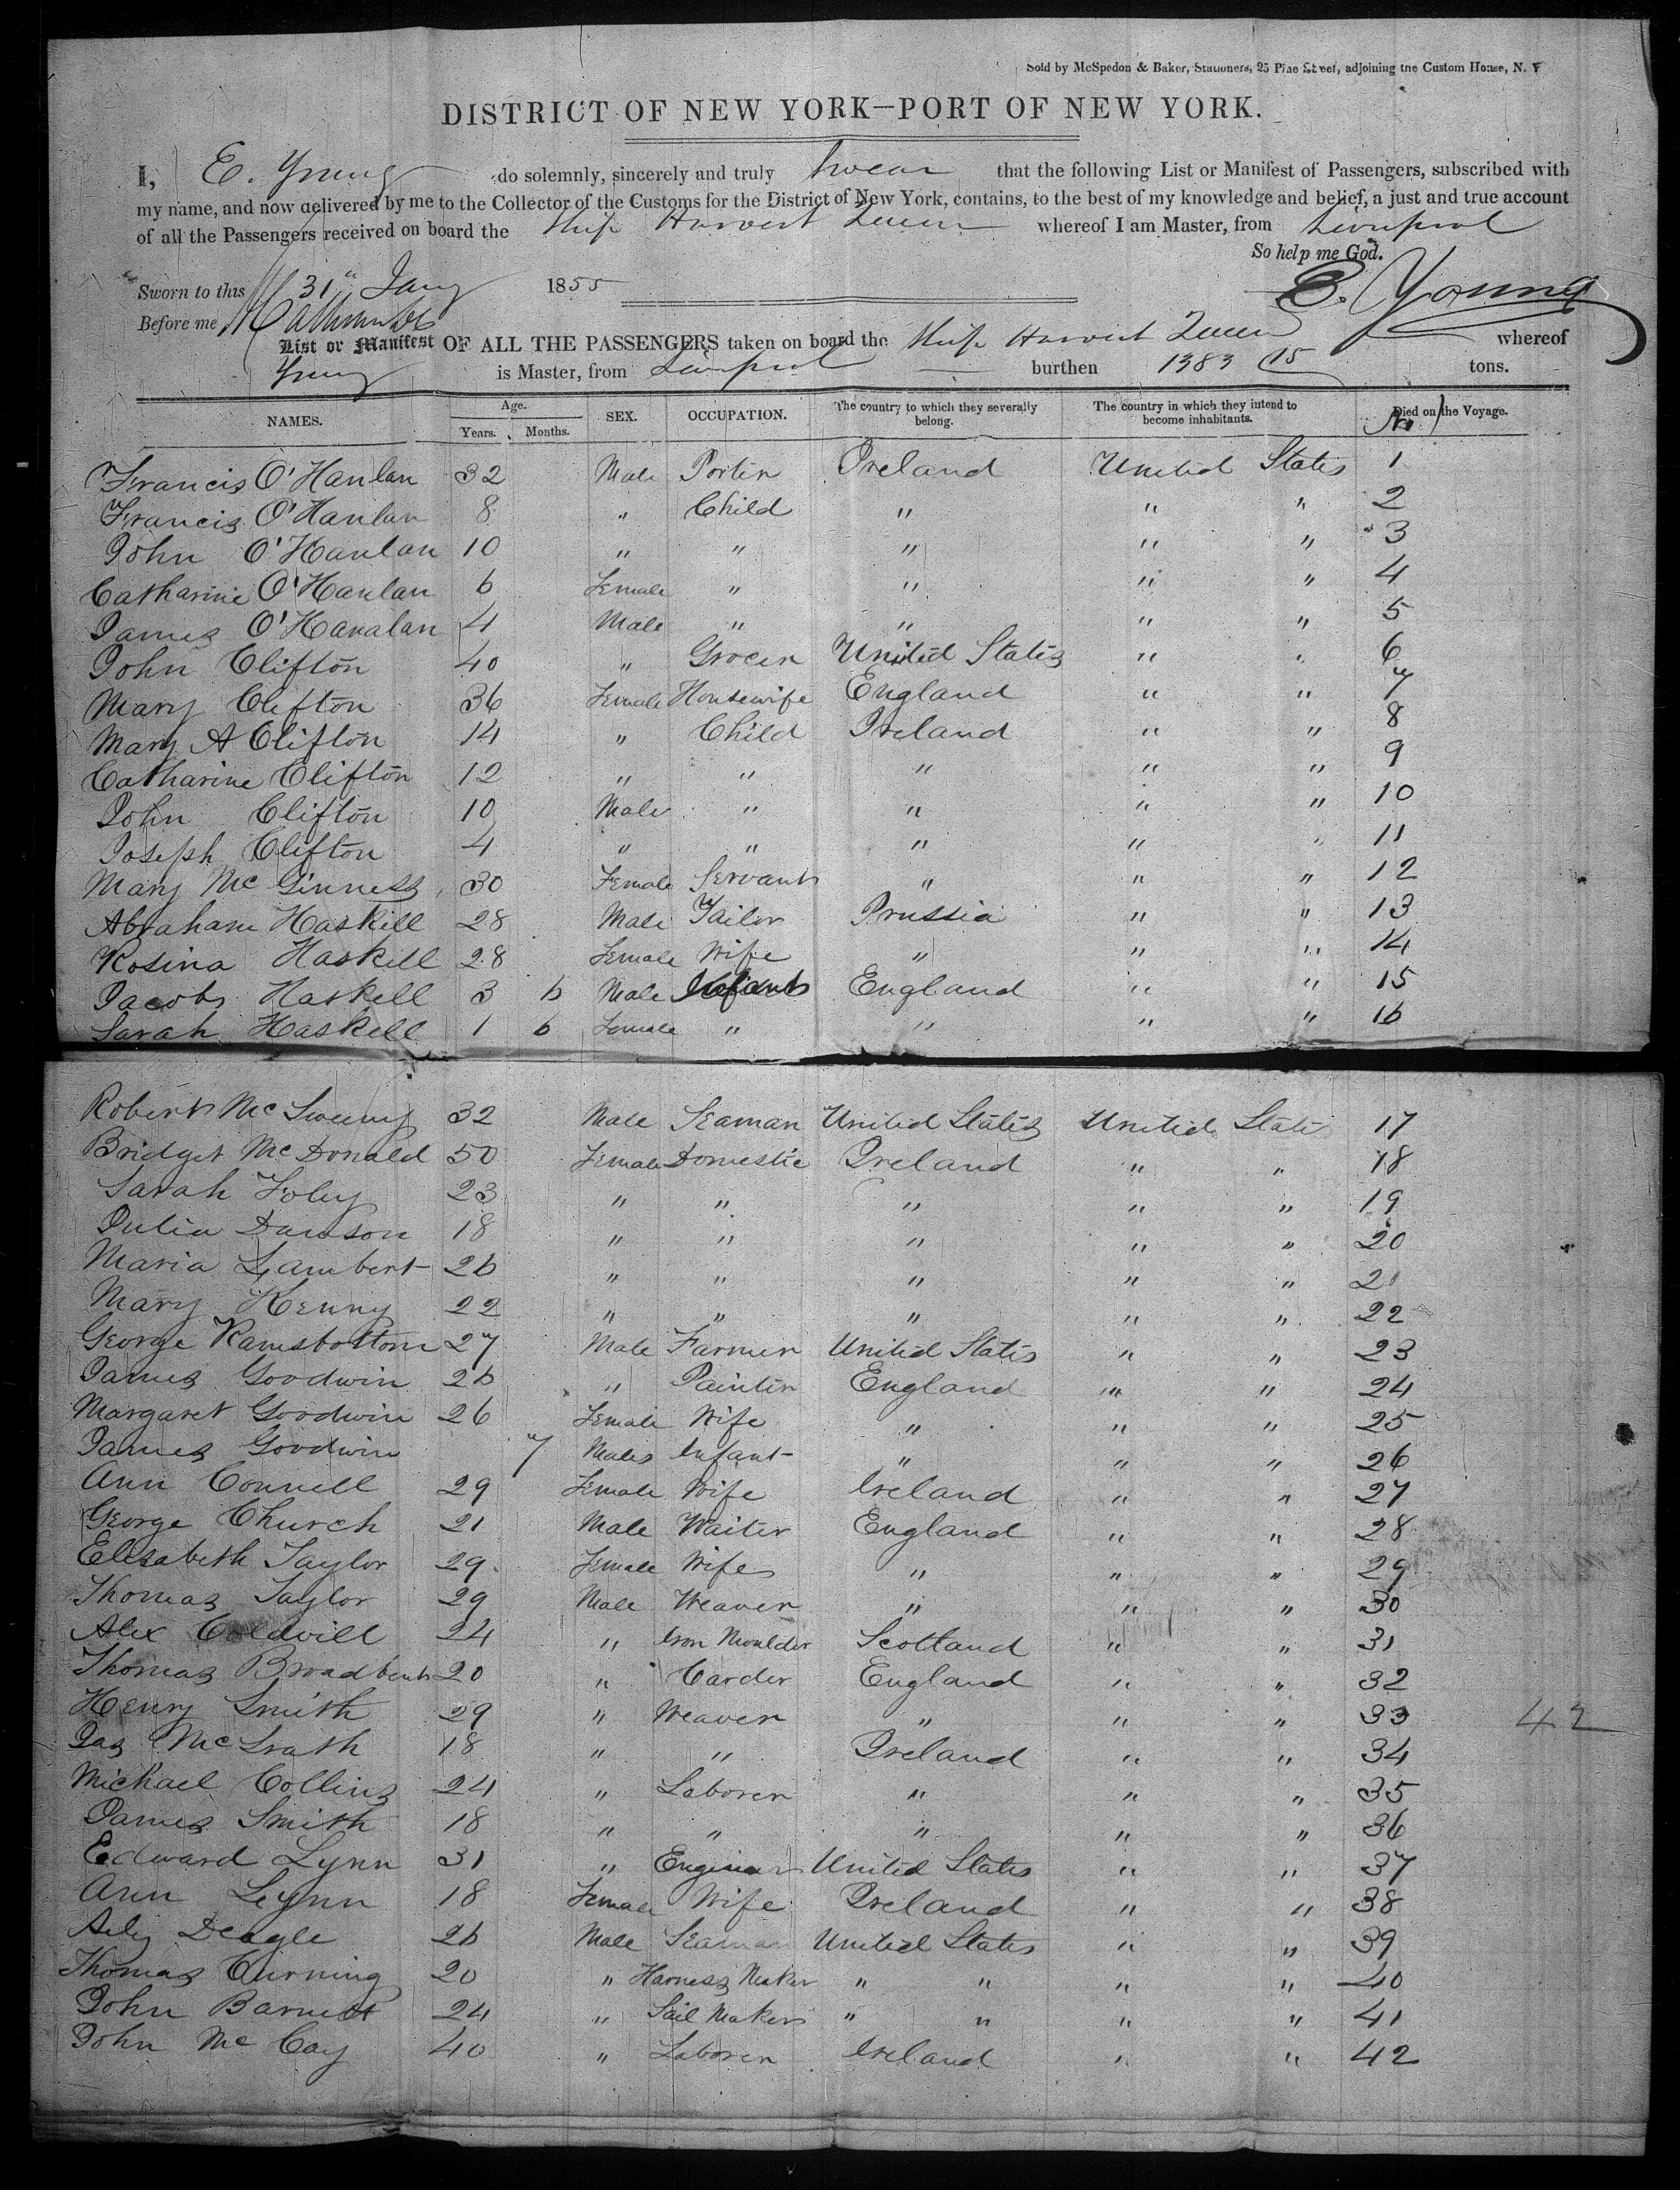 Sold by McSpedon & Baker, Stationers, 25 Pine Street, adjoining the Custom House, N. Y
DISTRICT OF NEW YORK—PORT OF NEW YORK.
I, E. Young do solemnly, sincerely and truly Swear that the following List or Manifest of Passengers, subscribed with
my name, and now delivered by me to the Collector of the Customs for the District of New York, contains, to the best of my knowledge and belief, a just and true account
of all the Passengers received on board the Ship Harvest Queen whereof I am Master, from Liverpool
So help me God.
Sworn to this 31" Jany 1855 E. Young
Before me
List or Manifest OF ALL THE PASSENGERS taken on board the Ship Harvest Queen whereof
Young is Master, from Liverpool burthen 1383 tons.
NAMES. Age. Years. Months. SEX. OCCUPATION. The country to which they severally belong. The country in which they intend to become inhabitants. Died on the Voyage. No
Francis O'Hanlan 32 Male Porter Ireland United States 1
Francis O'Hanlan 8 " Child " " " 2
John O'Hanlan 10 " " " " " 3
Catharine O'Hanlan 6 Female " " " " 4
James O'Hanalan 4 Male " " " " 5
John Clifton 40 " Grocer United States " " 6
Mary Clifton 36 Female Housewife England " " 7
Mary A Clifton 14 " Child Ireland " " 8
Catharine Clifton 12 " " " " " 9
John Clifton 10 Male " " " " 10
Joseph Clifton 4 " " " " " 11
Mary McGinness 30 Female Servant " " " 12
Abraham Haskell 28 Male Tailor Prussia " " 13
Rosina Haskell 28 Female Wife " " " 14
Jacob Haskell 3 6 Male Infant England " " 15
Sarah Haskell 1 6 Female " " " " 16
Robert McSweeny 32 Male Seaman United States United States 17
Bridget McDonald 50 Female Domestic Ireland " " 18
Sarah Foley 23 " " " " " 19
Julia Dawson 18 " " " " " 20
Maria Lambert 26 " " " " " 21
Mary Kenny 22 " " " " " 22
George Ramsbottom 27 Male Farmer United States " " 23
James Goodwin 26 " Painter England " " 24
Margaret Goodwin 26 Female Wife " " " 25
James Goodwin 7 Male Infant " " " 26
Ann Connell 29 Female Wife Ireland " " 27
George Church 21 Male Waiter England " " 28
Elizabeth Taylor 29 Female Wife " " " 29
Thomas Taylor 29 Male Weaver " " " 30
Alex Coldvill 24 " Iron Moulder Scotland " " 31
Thomas Broadbent 20 " Carder England " " 32
Henry Smith 29 " Weaver " " " 33 42
Jas McGrath 18 " " Ireland " " 34
Michael Collins 24 " Laborer " " " 35
James Smith 18 " " " " " 36
Edward Lynn 31 " Engineer United States " " 37
Ann Lynn 18 Female Wife Ireland " " 38
Deagle 26 Male Seaman United States " " 39
Thomas Curning 20 " Harness Maker " " " " 40
John Barnett 24 " Sail Maker " " " " 41
John McCay 40 " Laborer Ireland " " 42